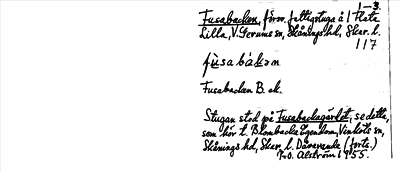 1-3.
Fusabacken, förr fattigstuga å 1 Flata
Lilla, V. Gerums sn, Skånings hd, Skar. l.
117
fùsabákən
Fusabackan B. ek.
Stugan stod på Fusabackagärdet, se detta,
som hör t. Blombacka Egendom, Vinköls sn,
Skånings hd, Skar. l. Dåvarande (forts.)
P.O. Alström 1955.